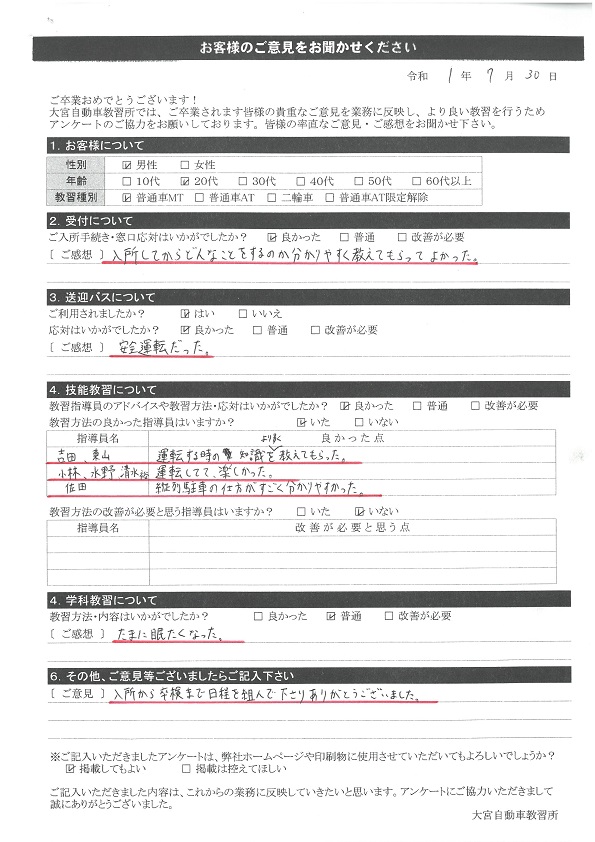 お客様のご意見をお聞かせください
令和 1 年 7 月 30 日
ご卒業おめでとうございます！
大宮自動車教習所では、ご卒業されます皆様の貴重なご意見を業務に反映し、より良い教習を行うため
アンケートのご協力をお願いしております。皆様の率直なご意見・ご感想をお聞かせ下さい。
1. お客様について
性別 ☑ 男性 □ 女性
年齢 □ 10代 ☑ 20代 □ 30代 □ 40代 □ 50代 □ 60代以上
教習種別 ☑ 普通車MT □ 普通車AT □ 二輪車 □ 普通車AT限定解除
2. 受付について
ご入所手続き・窓口応対はいかがでしたか？ ☑ 良かった □ 普通 □ 改善が必要
［ ご感想 ］ 入所してからどんなことをするのか分かりやすく教えてもらってよかった。
3. 送迎バスについて
ご利用されましたか？ ☑ はい □ いいえ
応対はいかがでしたか？ ☑ 良かった □ 普通 □ 改善が必要
［ ご感想 ］ 安全運転だった。
4. 技能教習について
教習指導員のアドバイスや教習方法・応対はいかがでしたか？ ☑ 良かった □ 普通 □ 改善が必要
教習方法の良かった指導員はいますか？ ☑ いた □ いない
指導員名 良かった点
吉田、東山 運転する時の知識をより良く教えてもらった。
小林、水野 清水裕 運転してて、楽しかった。
佐田 縦列駐車の仕方がすごく分かりやすかった。
教習方法の改善が必要と思う指導員はいますか？ □ いた ☑ いない
指導員名 改善が必要と思う点
4. 学科教習について
教習方法・内容はいかがでしたか？ □ 良かった ☑ 普通 □ 改善が必要
［ ご感想 ］ たまに眠たくなった。
6. その他、ご意見等ございましたらご記入下さい
［ ご意見 ］ 入所から卒検まで日程を組んで下さりありがとうございました。
※ご記入いただきましたアンケートは、弊社ホームページや印刷物に使用させていただいてもよろしいでしょうか？
☑ 掲載してもよい □ 掲載は控えてほしい
ご記入いただきました内容は、これからの業務に反映していきたいと思います。アンケートにご協力いただきまして
誠にありがとうございました。
大宮自動車教習所